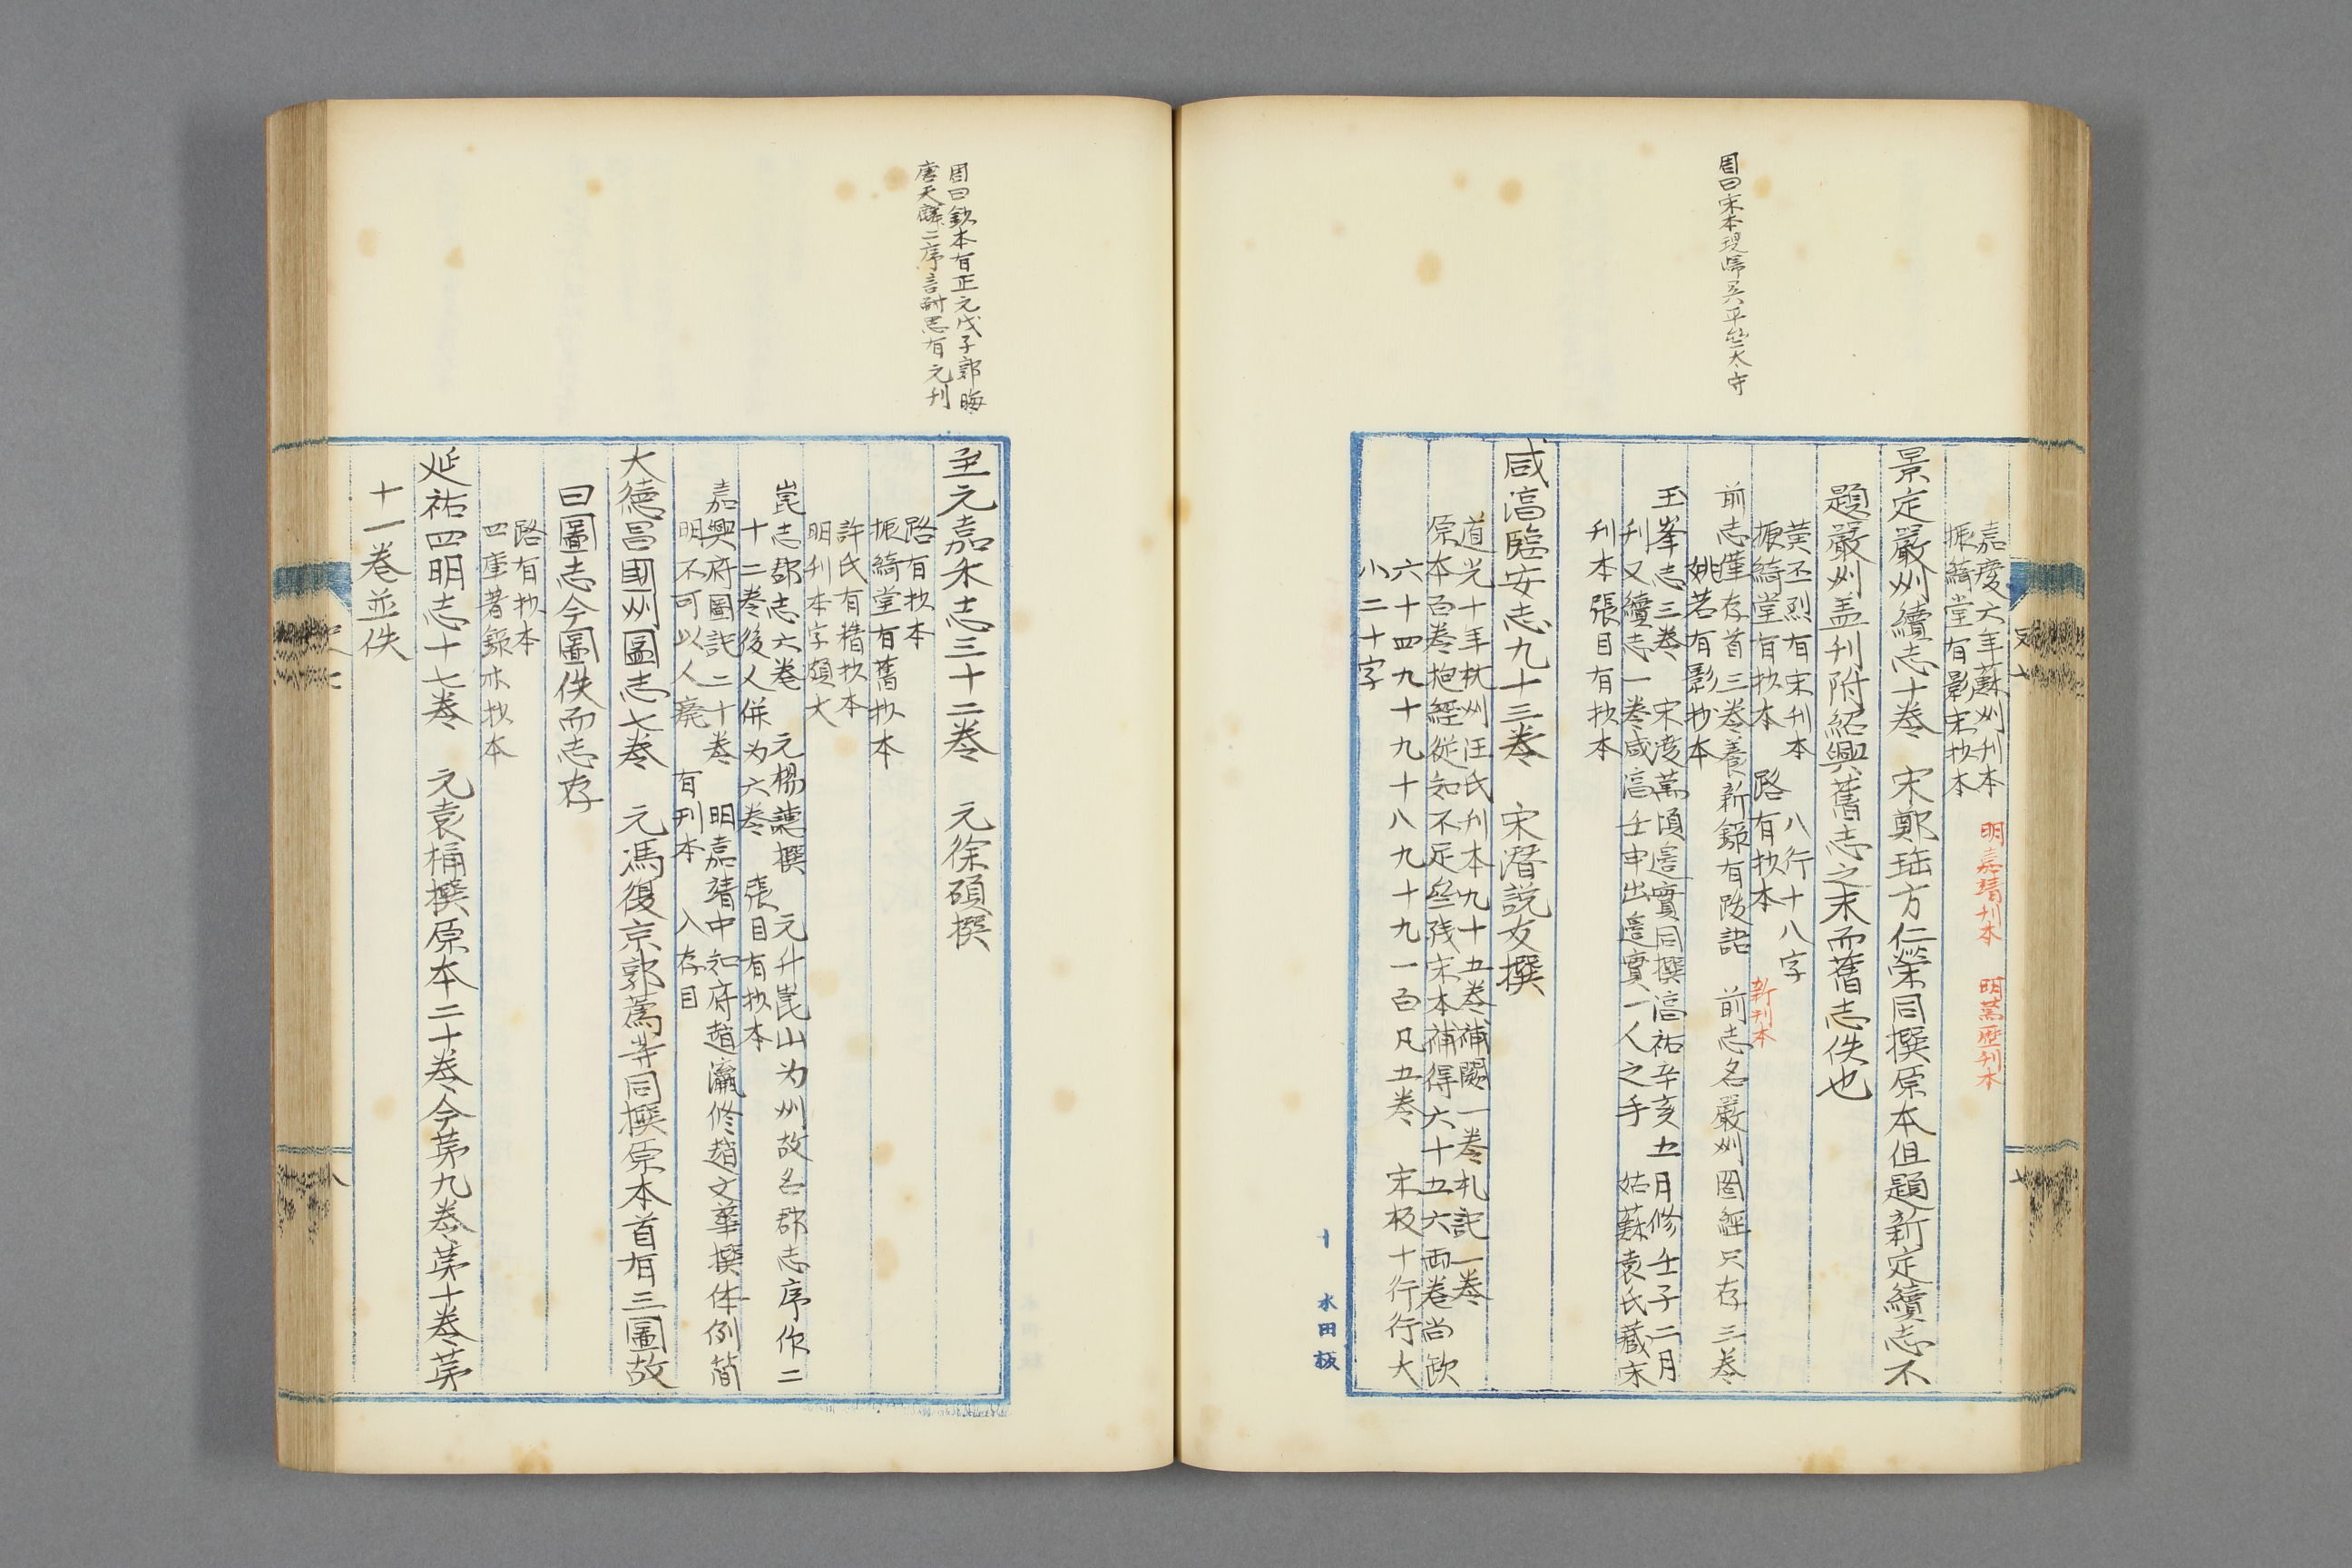 周曰宋本現歸吳平齋太守
嘉慶六年蘇州刊本　明嘉靖刊本　明萬歷刊本
振綺堂有影宋抄本
景定嚴州續志十卷　宋鄭瑶方仁榮同撰原本但題新定續志不
題嚴州盖刊附紹興舊志之末而舊志佚也
黃丕烈有宋刊本　八行十八字
振綺堂有抄本　路有抄本　新刊本
前志僅存首三卷養新錄有跋語　前志名嚴州圖經只存三卷
姚若有影抄本
玉峯志三卷　宋凌萬頃邊實同撰淳祐辛亥五月修壬子二月
刊又續志一卷咸淳壬申出邊實一人之手　姑蘇袁氏藏宋
刊本張目有抄本
咸淳臨安志九十三卷　宋潛説友撰
道光十年杭州汪氏刊本九十五卷補闕一卷札記一卷
原本百卷抱經從知不足齋殘宋本補得六十五六兩卷尚缺
六十四九十九十八九十九一百凡五卷　宋板十行行大
小二十字
十　水田板
周曰鈔本有正元戊子郭晦
唐天麟二序言耐思有元刊
至元嘉禾志三十二卷　元徐碩撰
路有抄本
振綺堂有舊抄本
許氏有精抄本
明刊本字頗大
崑志郡志六卷　元楊譓撰　元升崑山为州故名郡志序作二
十二卷後人併为六卷　張目有抄本
嘉興府圖記二十卷　明嘉靖中知府趙瀛修趙文華撰体例簡
明不可以人廢　有刊本　入存目
大德昌國州圖志七卷　元馮復京郭薦等同撰原本首有三圖故
曰圖志今圖佚而志存
路有抄本
四庫著錄亦抄本
延祐四明志十七卷　元袁桷撰原本二十卷今苐九卷苐十卷苐
十一卷並佚